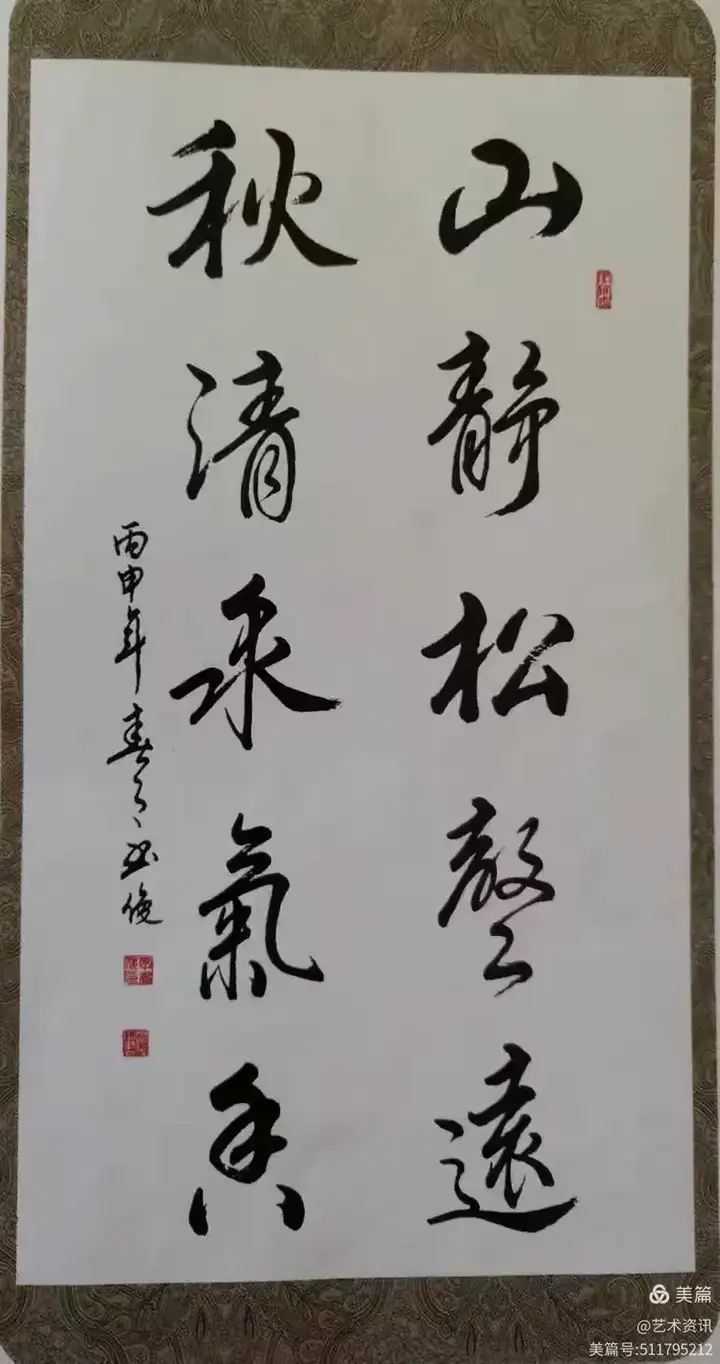 山靜松聲遠
秋清泉氣香
丙申年春月
美篇
@艺术资讯
美篇号:511795212